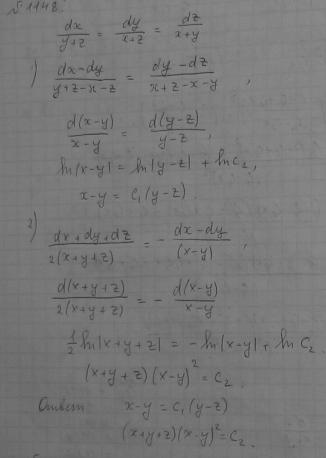 №1148.
dx/(y+z) = dy/(x+z) = dz/(x+y)
1) (dx-dy)/(y+z-x-z) = (dy-dz)/(x+z-x-y) ,
d(x-y)/(x-y) = d(y-z)/(y-z) ,
ln|x-y| = ln|y-z| + ln C₂ ,
x-y = C₁(y-z) .
2) (dx+dy+dz)/(2(x+y+z)) = - (dx-dy)/((x-y)) ,
d(x+y+z)/(2(x+y+z)) = - d(x-y)/(x-y)
½ ln|x+y+z| = -ln|x-y| + ln C₂.
(x+y+z)(x-y)² = C₂ .
Ответ x-y = C₁(y-z)
(x+y+z)(x-y)² = C₂ .